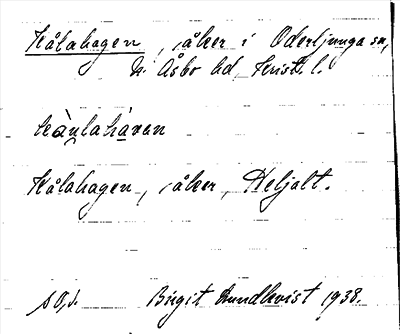 Kålahagen, åker i Oderljunga sn,
N. Åsbo hd, Krist. l.
Kålahagen, åker, Heljalt.
Birgit Lundkvist 1938.